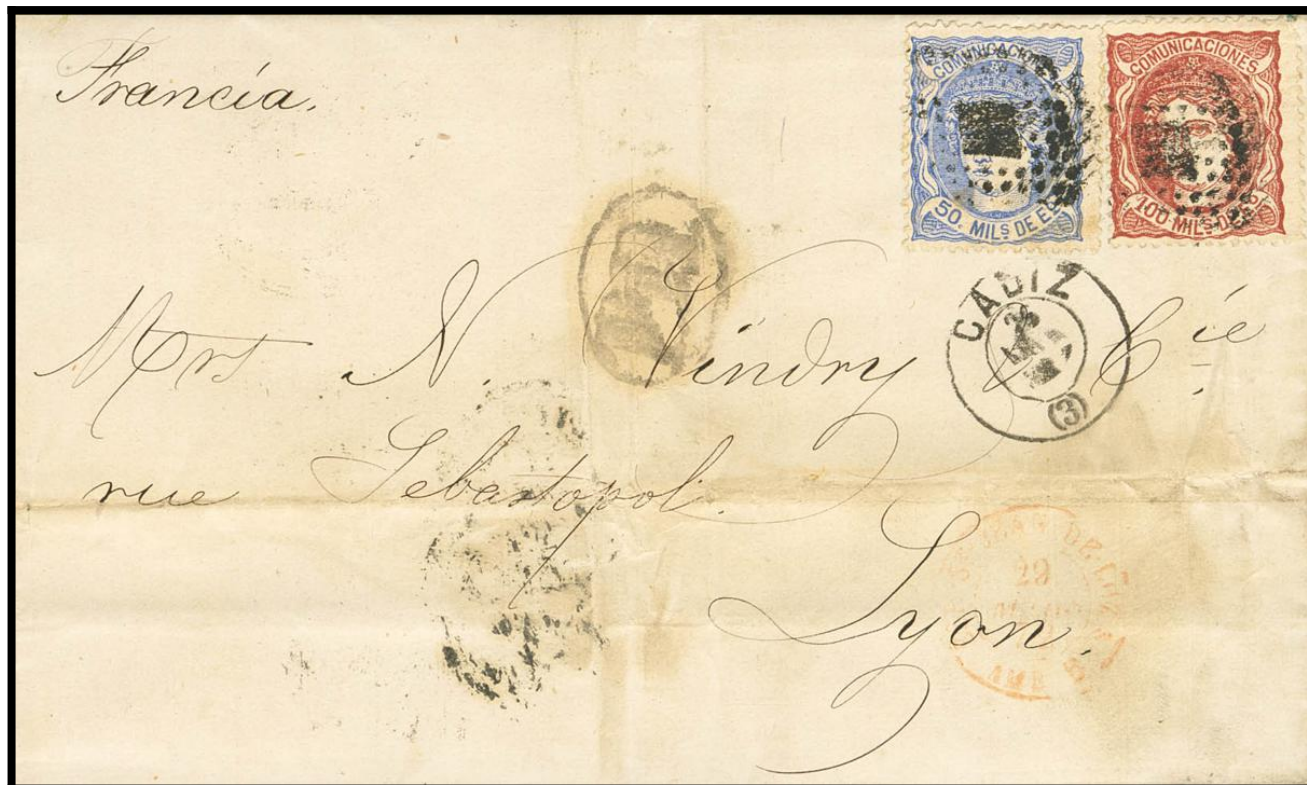 Francia.
COMUNICACIONES
50. MILS DE
COMUNICACIONES
100 MILS DE
CADIZ
(3)
Mrs N. Vindry & Cie
rue Sebastopol.
Lyon.
29